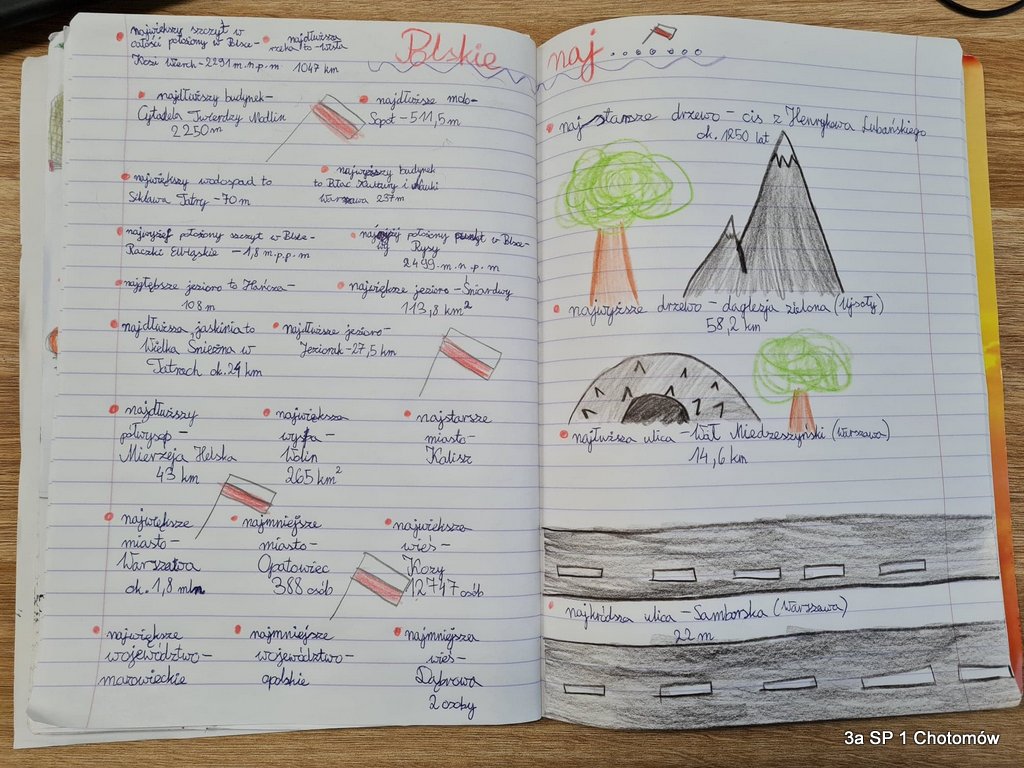 Polskie naj.........
największy szczyt w
całości położony w Polsce-
Kozi Wierch - 2291 m.n.p.m
najdłuższa
rzeka to - Wisła
1047 km
najdłuższy budynek-
Cytadela Twierdzy Modlin
2250m
najdłuższe molo-
Sopot - 511,5 m
największy wodospad to
Siklawa Tatry - 70 m
najwyższy budynek
to Pałac Kultury i Nauki
Warszawa 237m
najwyżej położony szczyt w Polsce-
Raczki Elbląskie - 1,8 m.p.p.m
punkt w Polsce-
Rysy
2499 m.n.p.m
najgłębsze jezioro to Hańcza-
108 m
największe jezioro - Śniardwy
113,8 km²
najdłuższa jaskinia to
Wielka Śnieżna w
Tatrach ok. 24 km
najdłuższe jezioro-
Jeziorak - 27,5 km
najdłuższy
półwysep -
Mierzeja Helska
43 km
największa
wyspa -
Wolin
265 km²
najstarsze
miasto -
Kalisz
największe
miasto -
Warszawa
ok. 1,8 mln
najmniejsze
miasto -
Opatowiec
388 osób
największa
wieś -
Kozy
12747 osób
największe
województwo -
mazowieckie
najmniejsze
województwo -
opolskie
najmniejsza
wieś -
Dąbrowa
2 osoby
najstarsze drzewo - cis z Henrykowa Lubańskiego
ok. 1250 lat
najwyższe drzewo - daglezja zielona (Ujsoły)
58,2 km
najtłuższa ulica - Wał Miedzeszyński (Warszawa)
14,6 km
najkródsza ulica - Samborska (Warszawa)
22 m
3a SP 1 Chotomów